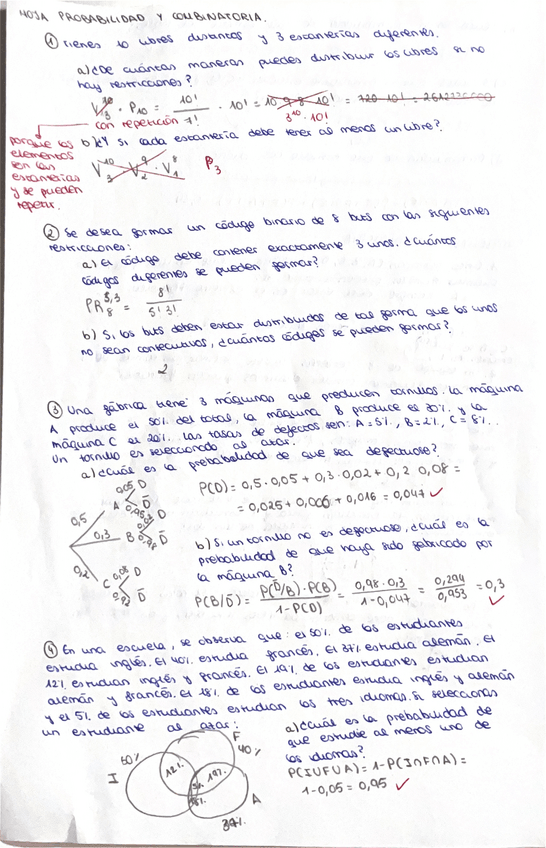 HOJA PROBABILIDAD Y COMBINATORIA.
① Tienes 10 libros distintos y 3 estanterías diferentes.
a) ¿De cuántas maneras puedes distribuir los libros si no
hay restricciones?
V₃¹⁰ · P₁₀ = 10!/7! · 10! = 10·9·8·10! = 720·10! =
con repetición
3¹⁰·10!
porque los
elementos
son las
estanterías
y se pueden
repetir.
b) ¿Y si cada estantería debe tener al menos un libro?
V₃¹⁰ · V₂⁹ · V₁⁸ P₃
② Se desea formar un código binario de 8 bits con las siguientes
restricciones:
a) El código debe contener exactamente 3 unos. ¿Cuántos
códigos diferentes se pueden formar?
PR₈^5,3 = 8!/5!3!
b) Si los bits deben estar distribuidos de tal forma que los unos
no sean consecutivos, ¿cuántos códigos se pueden formar?
2
③ Una fábrica tiene 3 máquinas que producen tornillos. La máquina
A produce el 50% del total, la máquina B produce el 30% y la
máquina C el 20%. Las tasas de defectos son: A = 5%, B = 2%, C = 8%.
Un tornillo es seleccionado al azar.
a) ¿Cuál es la probabilidad de que sea defectuoso?
0,5 A 0,05 D
0,95 D̄
0,3 B D
0,98 D̄
0,2 C 0,08 D
D̄
P(D) = 0,5·0,05 + 0,3·0,02 + 0,2 0,08 =
= 0,025 + 0,006 + 0,016 = 0,047 ✓
b) Si un tornillo no es defectuoso, ¿cuál es la
probabilidad de que haya sido fabricado por
la máquina B?
P(B/D̄) = P(D̄/B)·P(B)/1-P(D) = 0,98·0,3/1-0,047 = 0,294/0,953 = 0,3
✓
④ En una escuela, se observa que: el 50% de los estudiantes
estudia inglés. El 40% estudia francés. El 37% estudia alemán. El
12% estudian inglés y francés. El 19% de los estudiantes estudian
alemán y francés. El 18% de los estudiantes estudia inglés y alemán
y el 5% de los estudiantes estudian los tres idiomas. Si seleccionas
un estudiante al azar:
I
F
40%
12%
19%
5%
18%
A
37%
a) ¿Cuál es la probabilidad de
que estudie al menos uno de
los idiomas?
P(I∪F∪A) = 1-P(I∩F∩A) =
1-0,05 = 0,95 ✓